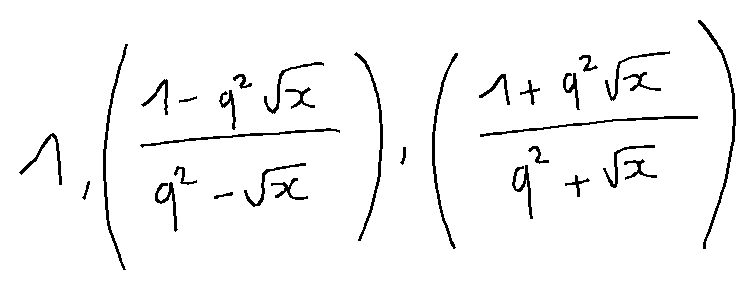 1, ((1 - q²√x)/(q² - √x)), ((1 + q²√x)/(q² + √x))